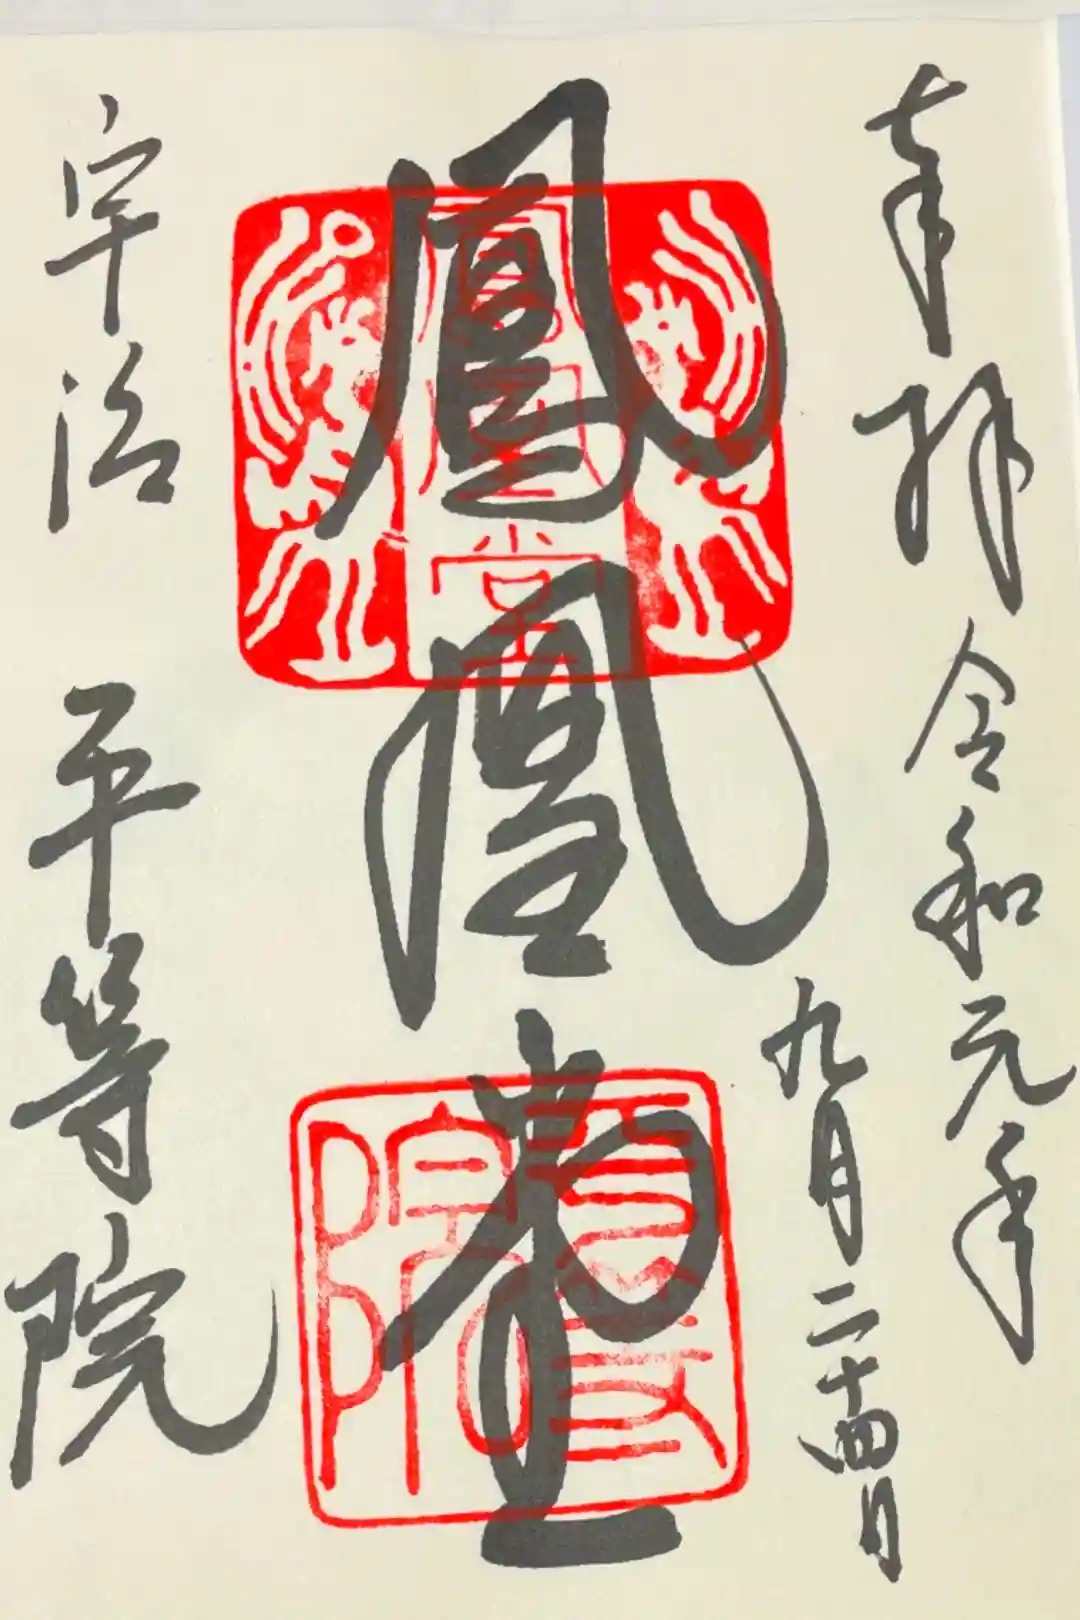 奉拝 令和元年
九月二十四日
鳳凰堂
宇治 平等院
鳳凰堂